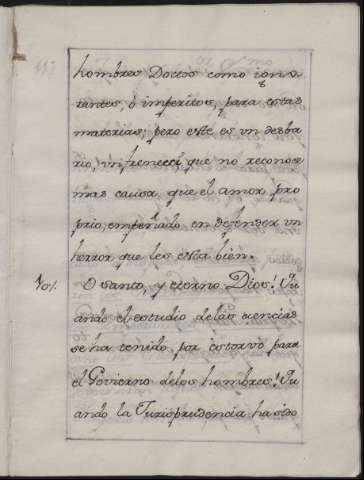 hombres Doctos como igno
rantes, ò imperitos, para estas
materias; pero este es un desba
rio, un frenecí que no reconoce
mas causa, que el amor pro
prio, empeñado en defender un
herror que les está bien.
O santo, y eterno Dios! Qu
ando el estudio de las ciencias
se ha tenido por estorvo para
el Govierno de los hombres! Qu
ando la Jurisprudencia ha sido